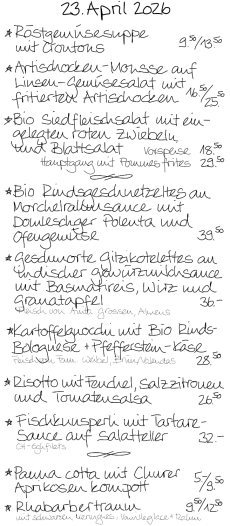 23. April 2026
* Röstgemüsesuppe
mit Croutons 9.50/13.50
* Artischocken-Mousse auf
Linsen-Gemüsesalat mit
frittierten Artischocken 16.50/25.50
* Bio Siedfleischsalat mit ein-
gelegten roten Zwiebeln
und Blattsalat Vorspeise 18.50
Hauptgang mit Pommes frites 29.50
* Bio Rindsgeschnetzeltes an
Morchelrahmsauce mit
Domleschger Polenta und
Ofengemüse 39.50
* Geschmorte Gitzikoteletten an
indischer Gewürzmilchsauce
mit Basmatireis, Wirz und
Granatapfel 36.-
Fleisch von Anita Grossen,
* Kartoffelgnocchi mit Bio Rinds-
Bolognese + Pfefferstein-Käse
Fleisch von Fam. 28.50
* Risotto mit Fenchel, Salzzitronen
und Tomatensalsa 26.50
* Fischknusperli mit Tartare-
Sauce auf Salatteller 32.-
* Panna cotta mit Churer
Aprikosenkompott 5/9.50
* Rhabarbertraum 9.50/12.50
mit schwarzen Meringues, Vanilleglace + Rahm